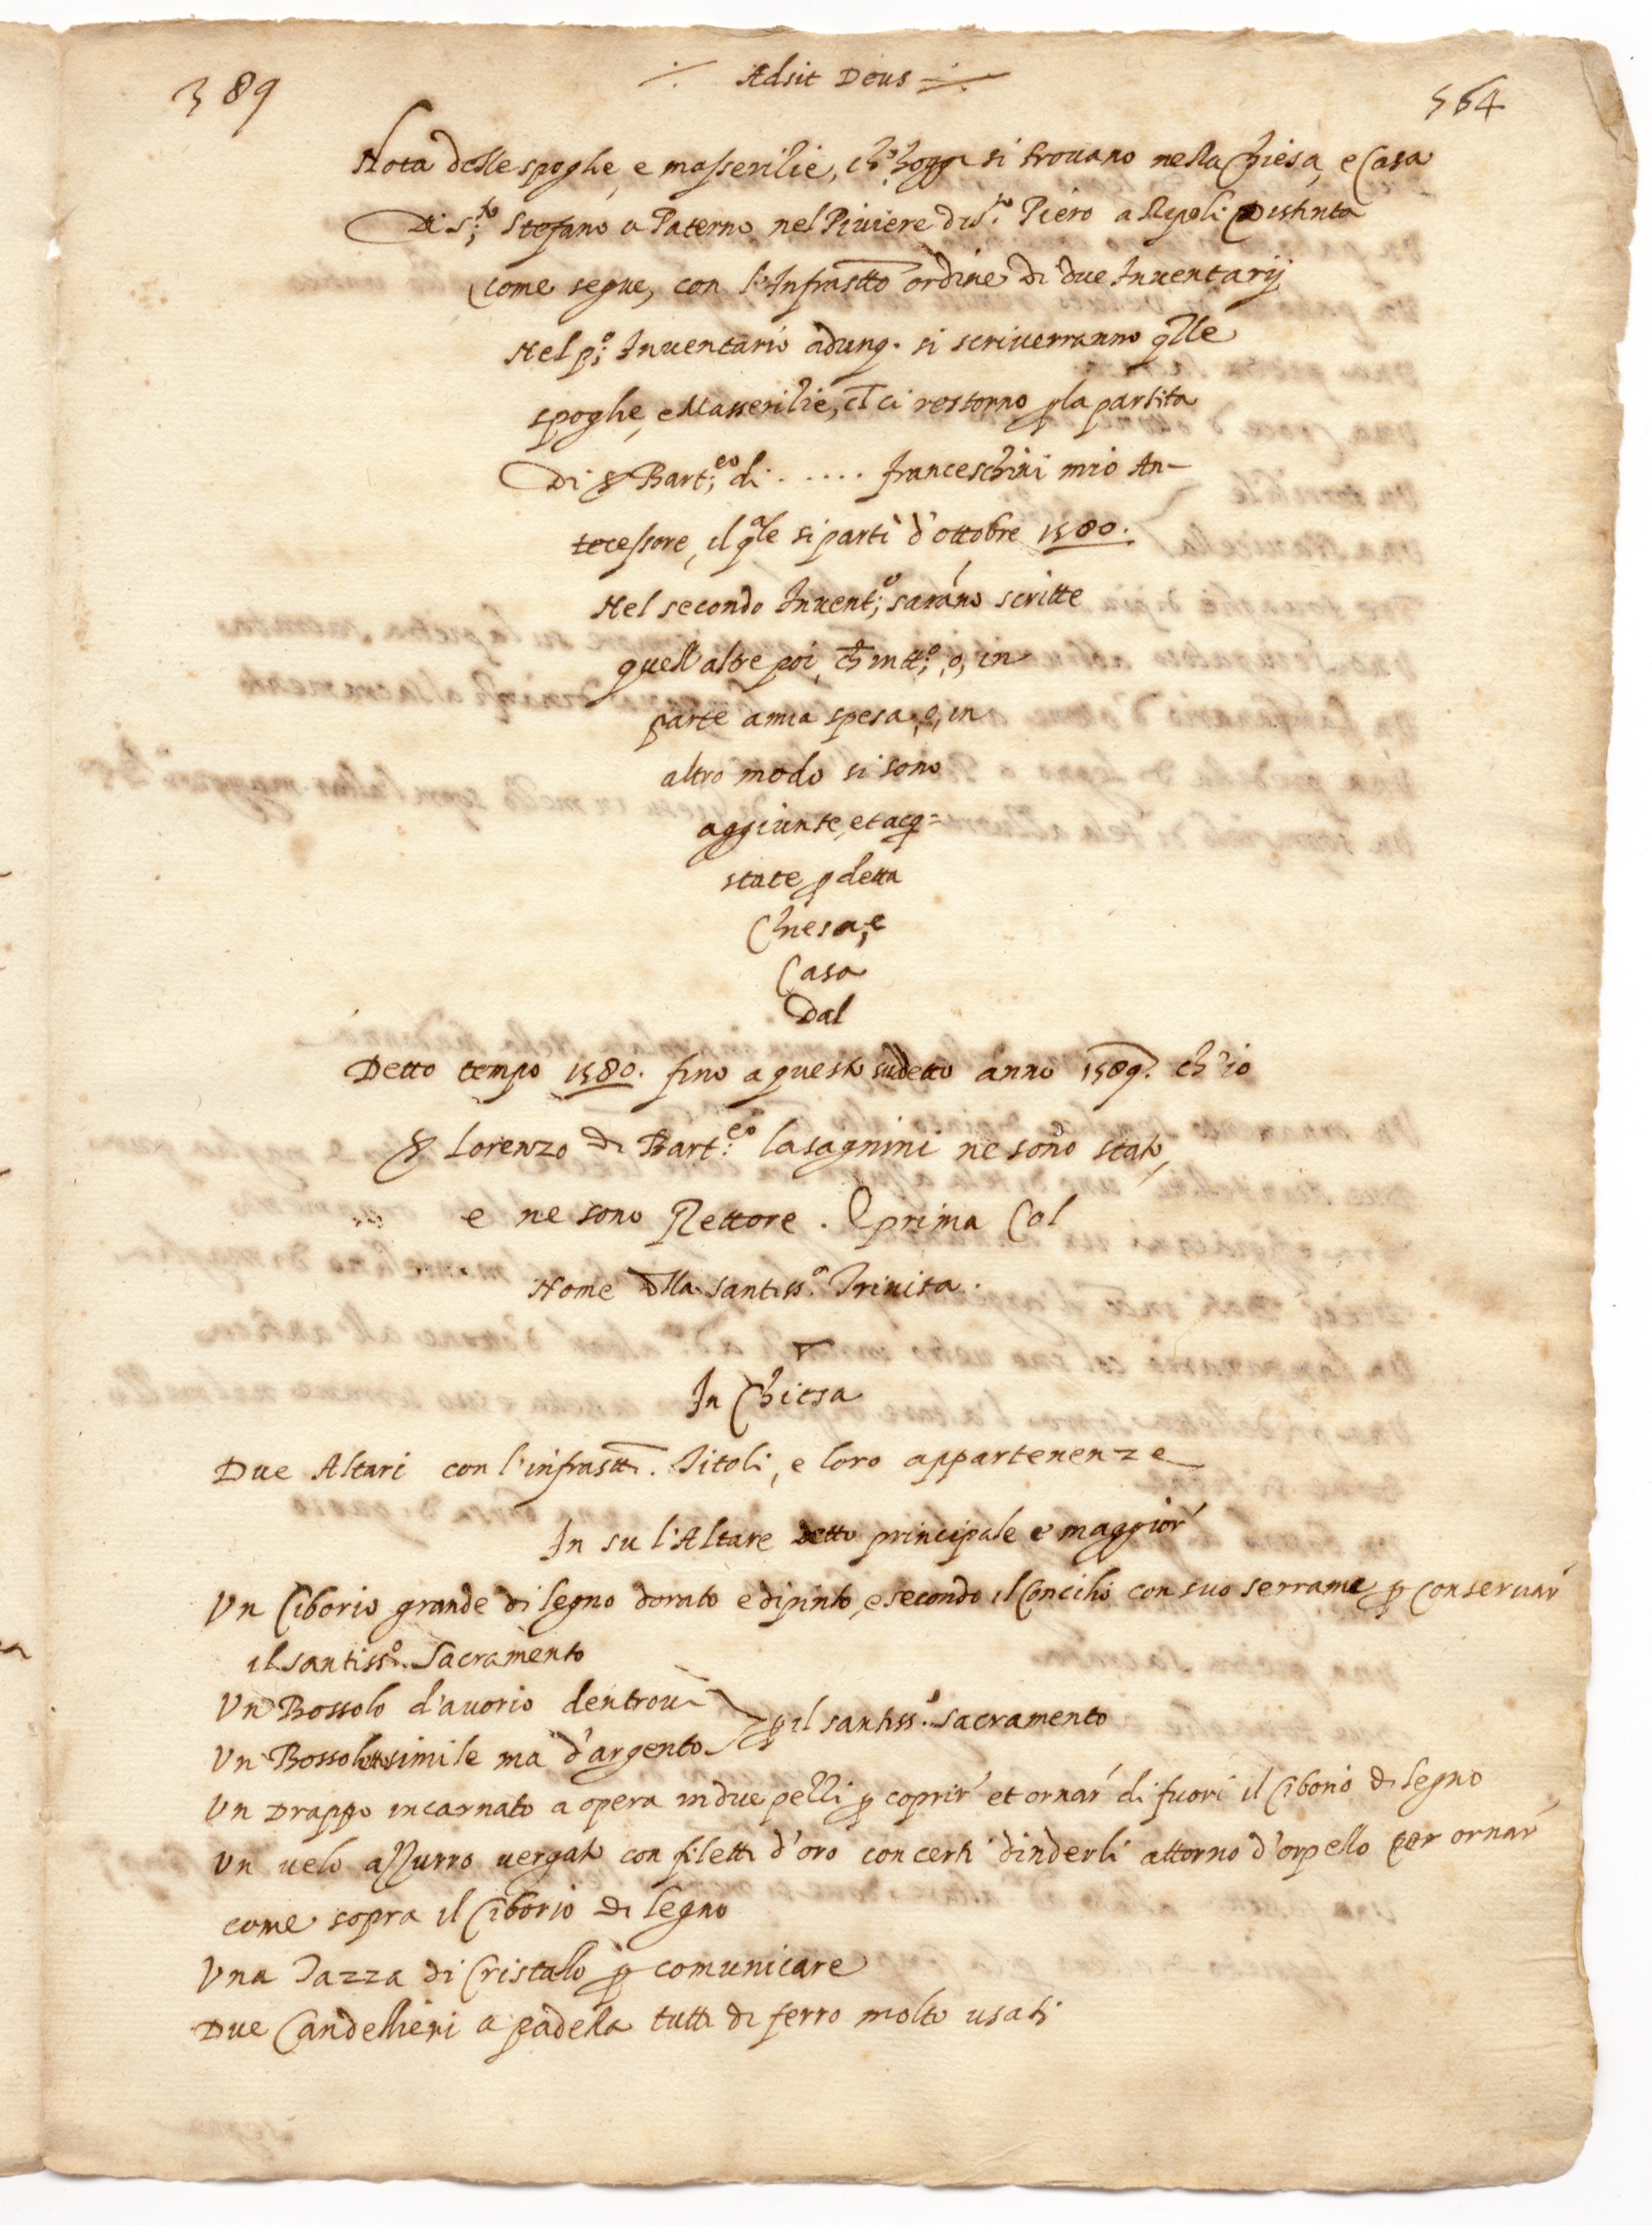 389
Adsit Deus
564
Nota delle spoglie, e masserilie, ch' hoggi si trovano nella Chiesa, e Casa
Di S.to Stefano a Paterno nel Piviere di S.to Piero a Ripoli Distinta
come segue, con l'Infrastto ordine di due Inventarij
Nel p.o Inventario adunq. si scriverranno qlle
spoglie, e Masserilie, ch ci restorno p la partita
Di S Bart.eo di ..... franceschini mio An-
tecessore, il qale si partì d'ottobre 1580.
Nel secondo Invent.o saranno scritte
quell'altre poi, ch in tt.o, o, in
parte a mia spesa, o, in
altro modo si sono
aggiunte, et acq=
state p detta
Chiesa, e
Casa
Dal
Detto tempo 1580. fino a questo sudetto anno 1589. ch'io
S Lorenzo di Bart.eo lasagnini ne sono stato,
e ne sono Rettore. E prima Col
Nome dlla Santiss.a Trinita.
In Chiesa
Due Altari con l'infrastti. Titoli, e loro appartenenze
In su l'Altare detto principale e maggior'
Un Ciborio grande di legno dorato e dipinto, e secondo il Concilio con suo serrame p conservar'
il santiss.o Sacramento
Un Bossolo d'avorio dentrovi
p il santiss.o Sacramento
Un Bossoletto simile ma d'argento
Un Drappo incarnato a opera in due pelli p coprir' et ornar' di fuori il Ciborio di legno
Un velo azzurro vergato con filetti d'oro con certi dinderli attorno d'orpello per ornar'
come sopra il Ciborio di legno
Una Tazza di Cristallo p comunicare
Due Candellieri a padella tutti di ferro molto usati